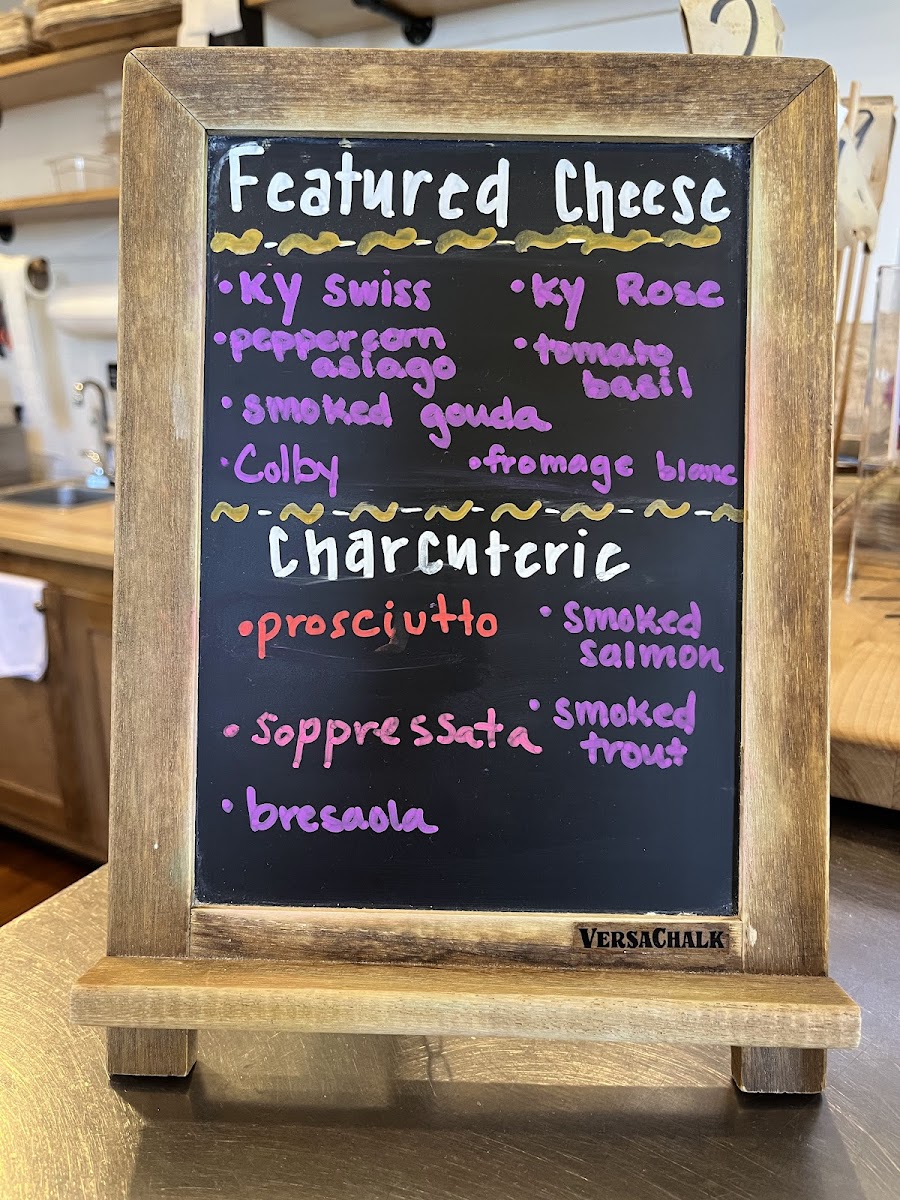 2
Featured Cheese
• KY Swiss
• peppercorn
asiago
• smoked gouda
• Colby
• KY Rose
• tomato
basil
• fromage blanc
Charcuterie
• prosciutto
• soppressata
• bresaola
• smoked
salmon
• smoked
trout
VERSACHALK